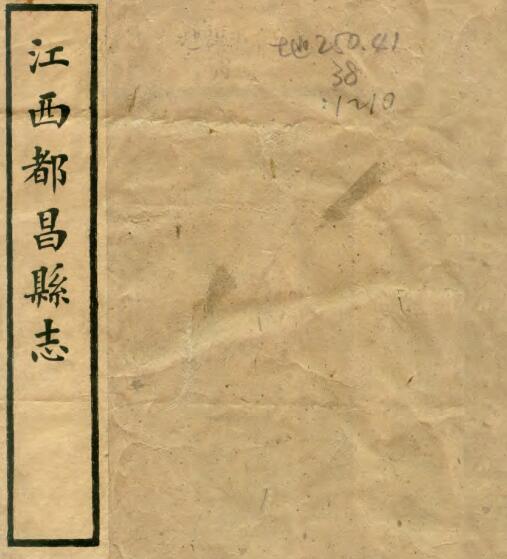 江西都昌縣志
地250.41
38
:1~10